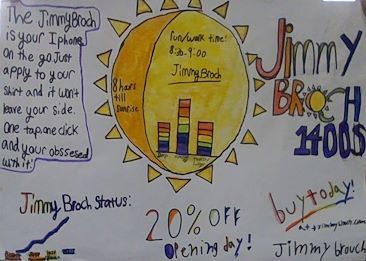 The JimmyBroch
is your Iphone
on the go. Just
apply to your
shirt and it won't
leave your side.
One tap, one click
and your obssesed
with it!
Fun/work time!
8:30-9:00
JimmyBroch
8 hours
till
sunrise
Jimmy
BROCH
1400$
Jimmy Broch Status:
20% OFF
Opening day!
buy today!
Jimmy brouch